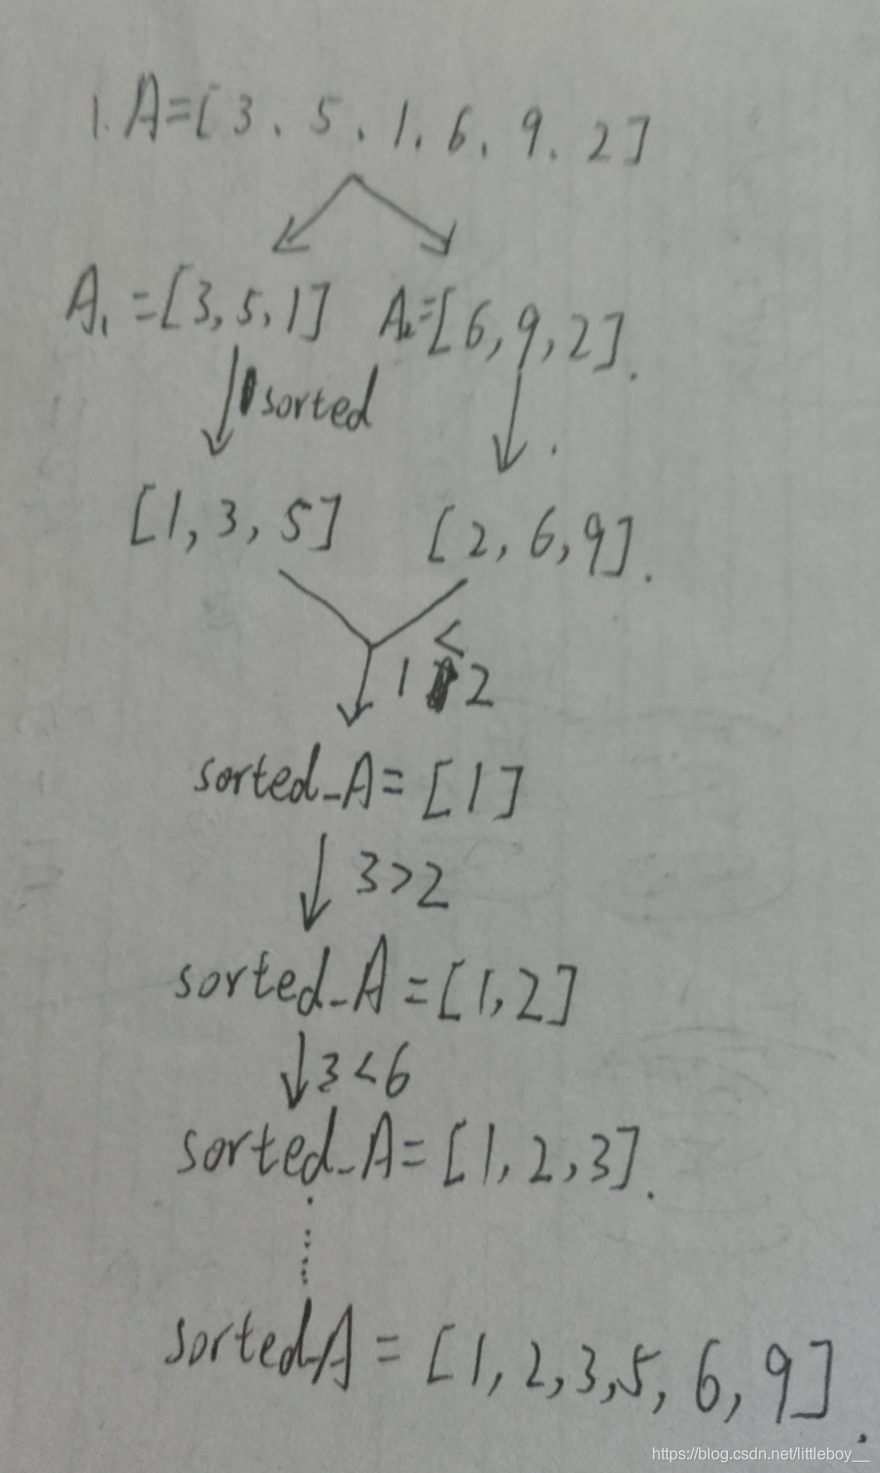 1. A=[3、5、1、6、9、2]
A₁=[3,5,1] A₂=[6,9,2].
sorted
[1,3,5] [2,6,9].
1<2
sorted_A=[1]
3>2
sorted_A=[1,2]
3<6
sorted_A=[1,2,3].
......
sorted_A=[1,2,3,5,6,9].
https://blog.csdn.net/littleboy__